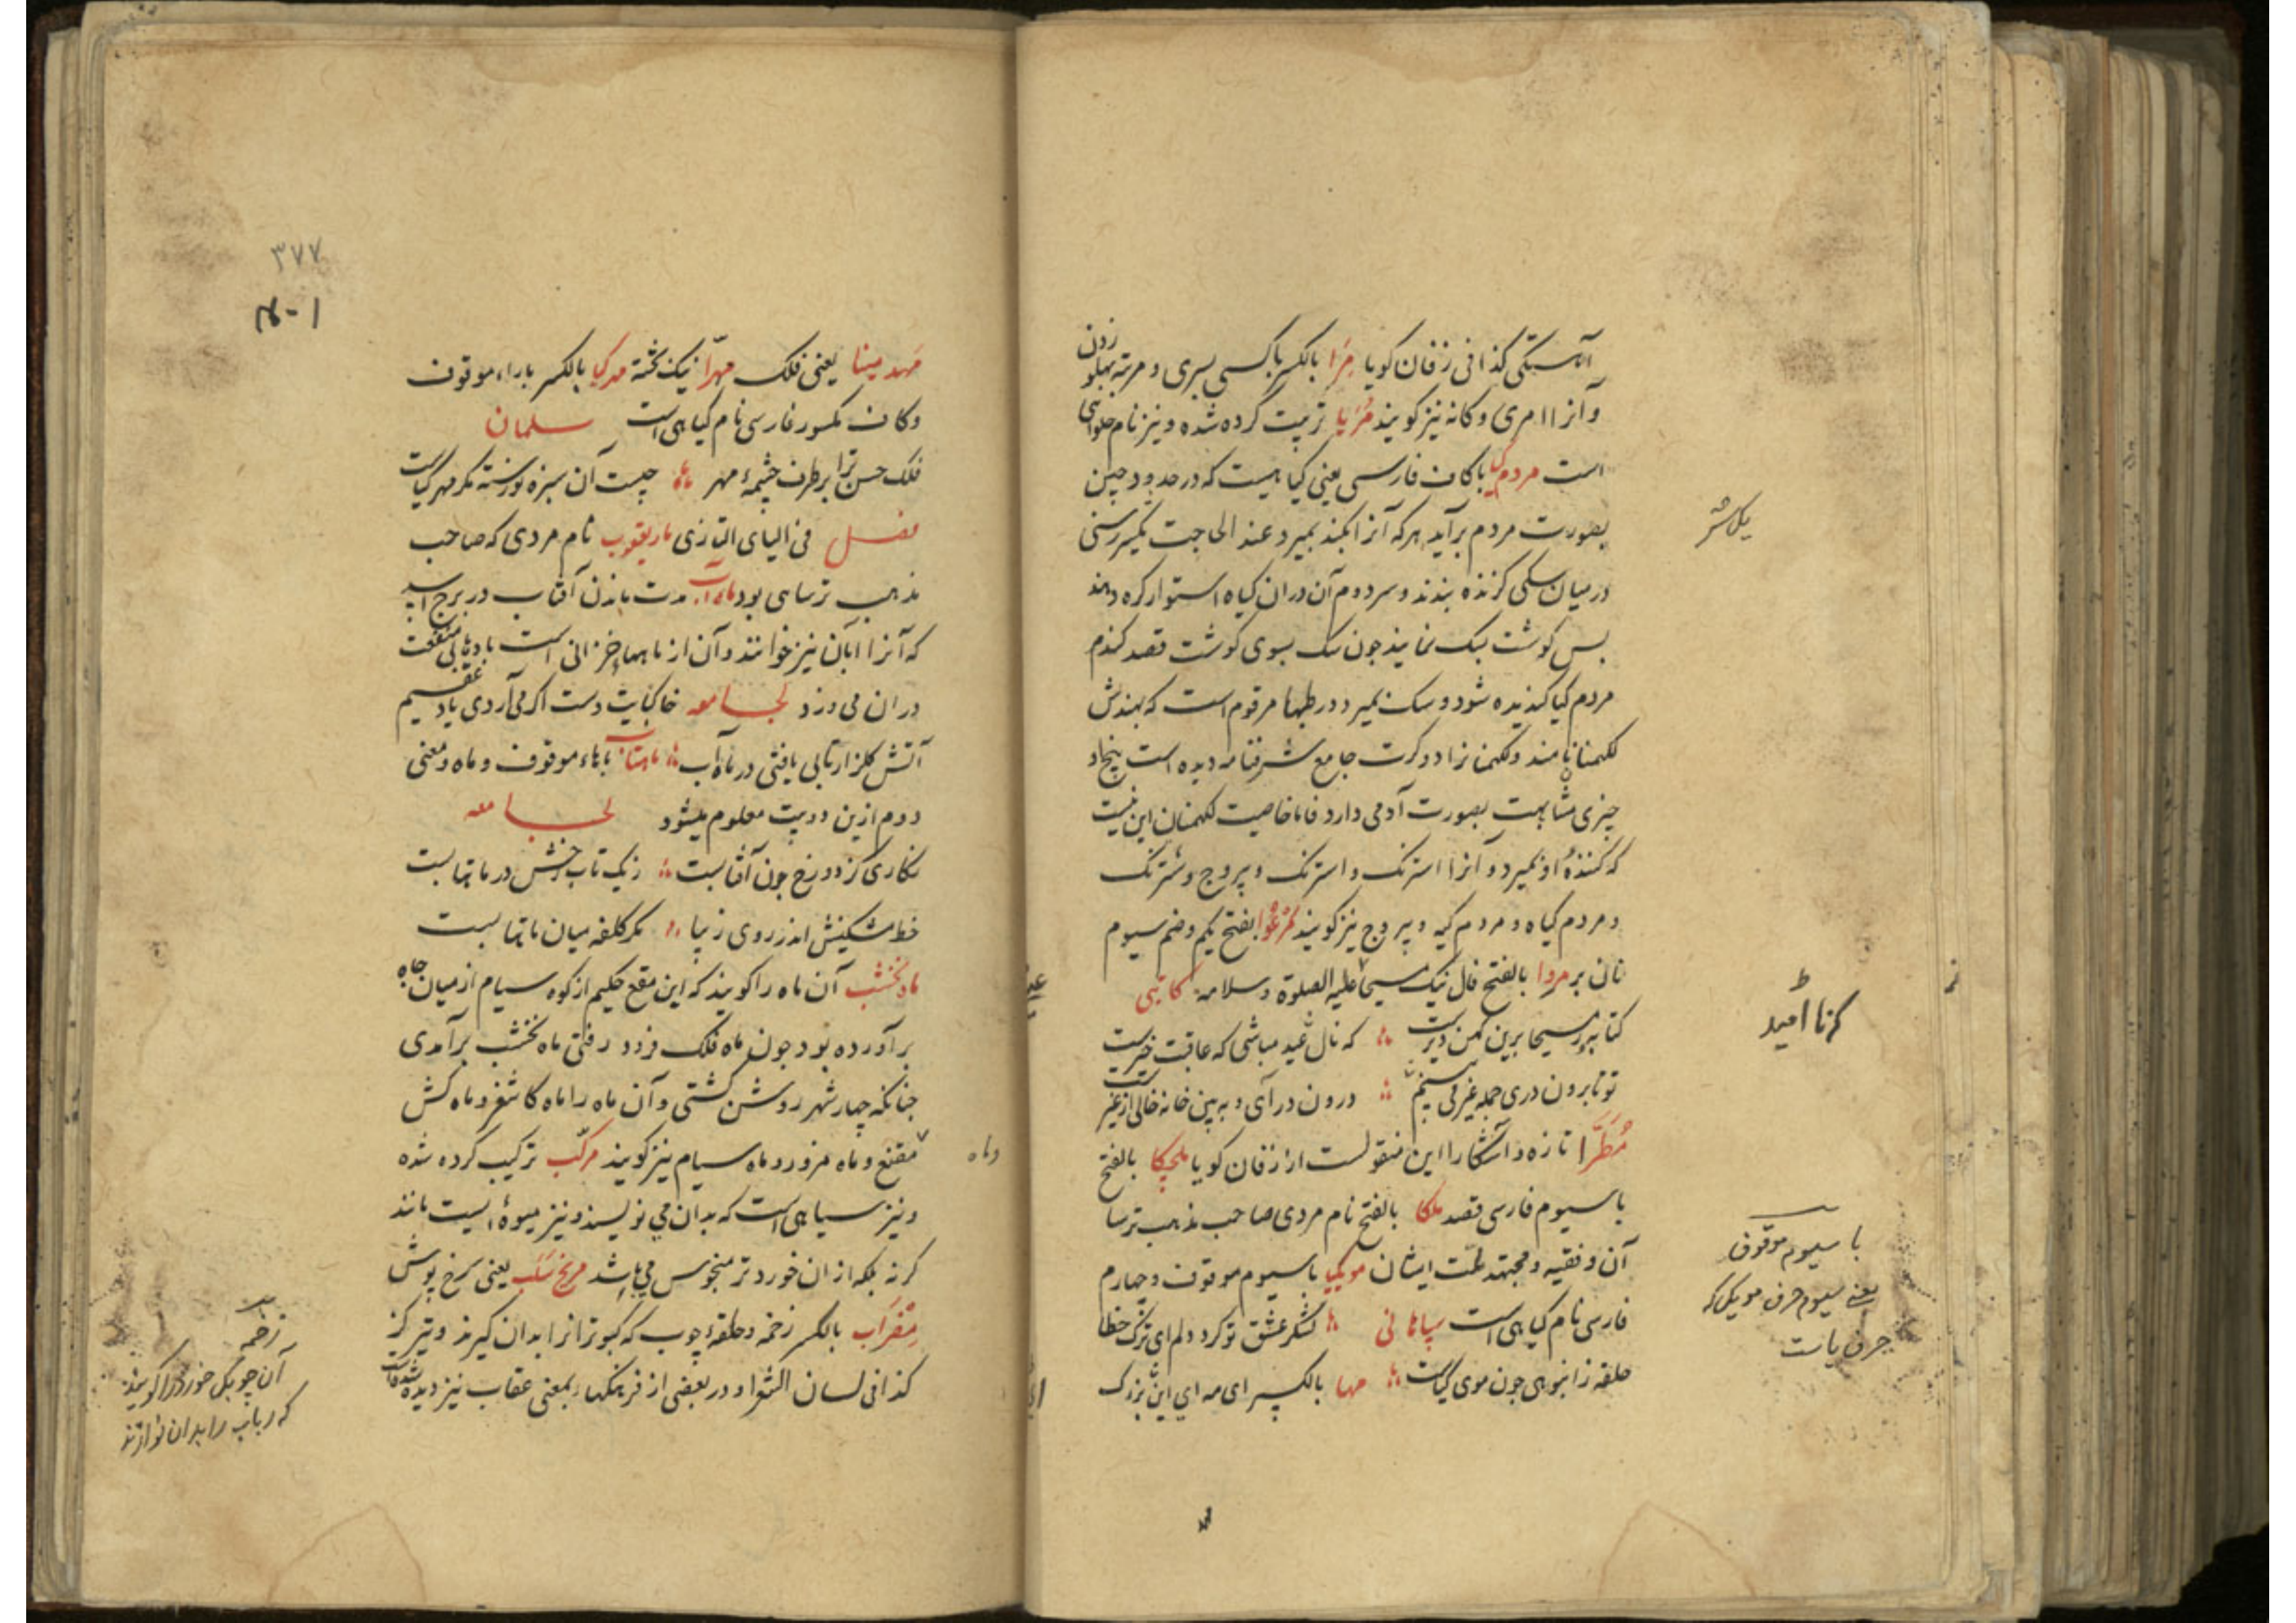 آهستگی کذا فی زفان کویا مرا بالکسر باکسی بسری و مرتبه بهلو زدن
و آنرا امری و کانه نیز کویند مربا تربیت کرده شده و نیز نام حلوائی
است مردم کیا با کاف فارسی یعنی کیا هیست که در حدود چین
بصورت مردم برآید هرکه آنرا بکند بمیرد عند الحاجت یکسر رسنی
در میان سکی کرنده بندند و سر دوم آن دران کیاه استوار کره دهند
بس کوشت بسک نمایند جون سک بسوی کوشت قصد کند
مردم کیا کندیده شود و سک بمیرد و در طبها مرقوم است که بهندش
لکهمنا نامند و لکهمنا نرا دو کرت جامع شرفنامه دیده است بیخ او
چیزی مشابهت بصورت آدمی دارد فاما خاصیت لکهمنان این نیست
که کنندهٔ او بمیرد و آنرا استرنک و استرنک و پیروج و شترنک
و مردم کیاه و مردم کیه و پیروج نیز کویند مرغوا بفتح یکم و ضم سیوم
نان بر مروا بالفتح فال نیک مسیحا علیه الصلوة و سلامه کاتبی
که نال عید مباشی که عاقبت خیرست
تو تا برون دری جمله غیر می بینی درون در آی و به بین خانه خالی از غیرست
مطرا تازه و آشکارا این منقولست از زفان کویا ملچکا بالفتح
با سیوم فارسی قصد ملکا بالفتح نام مردی صاحب مذهب ترسا
آن و فقیه و مجتهد ملت ایشان مویکیا با سیوم موقوف و چهارم
فارسی نام کیاهی است سپاهانی لشکر عشق تو کرد دلم ای ترک خطا
حلقه زانبوهی جون موی کیاست مها بالکسر ای مه ای این بزرک
کرنا امید
با سیوم موقوف
یعنی سیوم حرف مویکیا که
حرف یاست
۳۷۷
مهد مینا یعنی فلک مهرا نیک بخته مهرکیا بالکسر با راء موقوف
و کاف مکسور فارسی نام کیاهی است سلمان
فلک حسن ترا بر طرف چشمهٔ مهر چیست آن سبزه نورسته مکر مهر کیاست
فصل فی الباء التازی مار یعقوب نام مردی که صاحب
مذهب ترسایی بود ماه آب مدت ماندن آفتاب در برج اسد
که آنرا ابان نیز خوانند و آن از ماههاء خزانی است باد با بی منفعت
دران می وزد لجامعه خاکپایت دست اکر می آردی باد عقیم
آتش کلزار تابی یافتی در ماه آب ماهتاب باهاء موقوف و ماه و معنی
دوم ازین دو بیت معلوم میشود لجامعه
نکاری کز دو رخ جون آفتابست زیک تاب رخش در ماهتابست
خط مشکینش اندر روی زیبا مکر کلفه میان ماهتابست
ماه نخشب آن ماه را کویند که ابن مقنع حکیم از کوه سیام از میان چاه
برآورده بود جون ماه فلک فرو رفتی ماه نخشب برآمدی
جنانکه چهار شهر روشن کشتی و آن ماه را ماه کاشغر و ماه کش
وماه
مقنع و ماه مزور و ماه سیام نیز کویند مرکب ترکیب کرده شده
و نیز سیاهی است که بدان می نویسند و نیز میوهٔ ایست مانند
کرنه بلکه از ان خورد تر منجوس می باشد مریخ سلب یعنی سرخ پوش
مضراب بالکسر زخمه و حلقهٔ چوب که کبوترانرا بدان کیرند و تیر کز
کذا فی لسان الشعرا و در بعضی از فرهنکها بمعنی عقاب نیز دیده شده است
زخمه
آن چوبکی خورد را کویند
که رباب را بدان نوازند